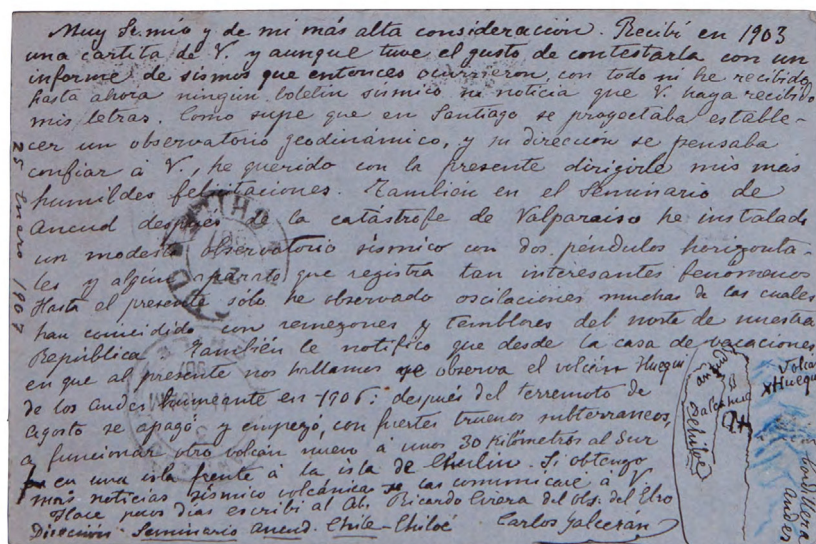 Muy Sr. mío y de mi más alta consideración. Recibí en 1903
una cartita de V. y aunque tuve el gusto de contestarla con un
informe de sismos que entonces ocurrieron, con todo ni he recibido
hasta ahora ningún boletin sísmico ni noticia que V. haya recibido
mis letras. Como supe que en Santiago se proyectaba estable-
cer un observatorio geodinámico, y su dirección se pensaba
confiar á V., he querido con la presente dirigirle mis más
humildes felicitaciones. Tambien en el Seminario de
Ancud después de la catástrofe de Valparaiso he instalado
un modesto observatorio sísmico con dos péndulos horizonta-
les y algún aparato que registra tan interesantes fenómenos
Hasta el presente sólo he observado oscilaciones muchas de las cuales
han coincidido con remezones y temblores del norte de nuestra
República. También le notifico que desde la casa de vacaciones
en que al presente nos hallamos se observa el volcán Huequi
de los Andes humeante en 1906: después del terremoto de
Agosto se apagó y empezó, con fuertes truenos subterraneos,
a funcionar otro volcán nuevo á unos 30 Kilómetros al Sur
en una isla frente á la isla de Chulin. Si obtengo
mas noticias sísmico volcánicas se las comunicaré a V.
Hace pocos días escribí al Ab. Ricardo Cirera del Obs. del Ebro
Dirección - Seminario Ancud. Chile - Chiloé Carlos Galcerán
25 Enero 1907
Ancud
Chiloé
Dalcahue
Volcan
Huequi
Cordillera
Andes